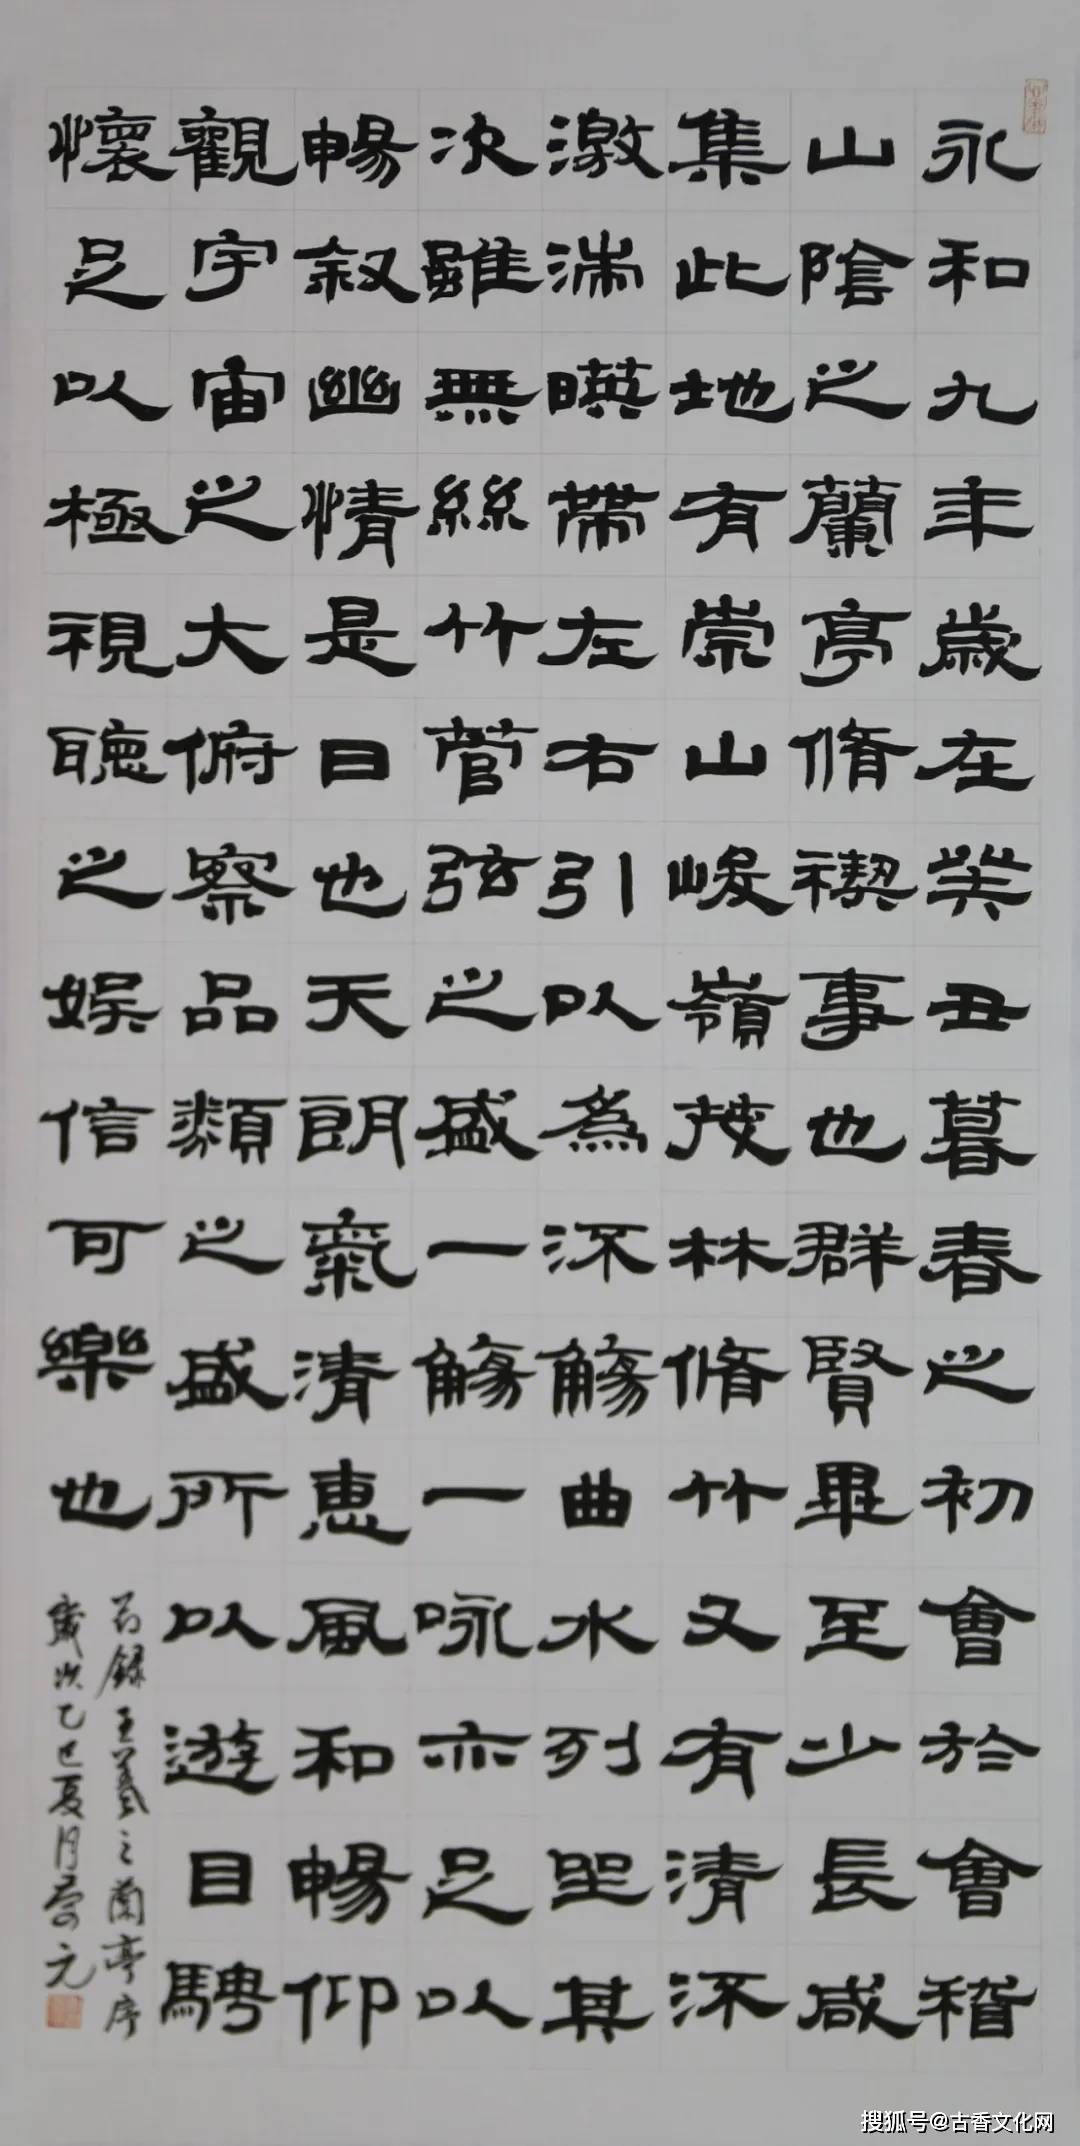 永和九年歲在癸丑暮春之初會於會稽
山陰之蘭亭脩禊事也群賢畢至少長咸
集此地有崇山峻嶺茂林脩竹又有清流
激湍暎帶左右引以為流觴曲水列坐其
次雖無絲竹管弦之盛一觴一咏亦足以
暢叙幽情是日也天朗氣清惠風和暢仰
觀宇宙之大俯察品類之盛所以遊目騁
懷足以極視聽之娛信可樂也
节錄王羲之蘭亭序
歲次乙巳夏月元
搜狐号@古香文化网